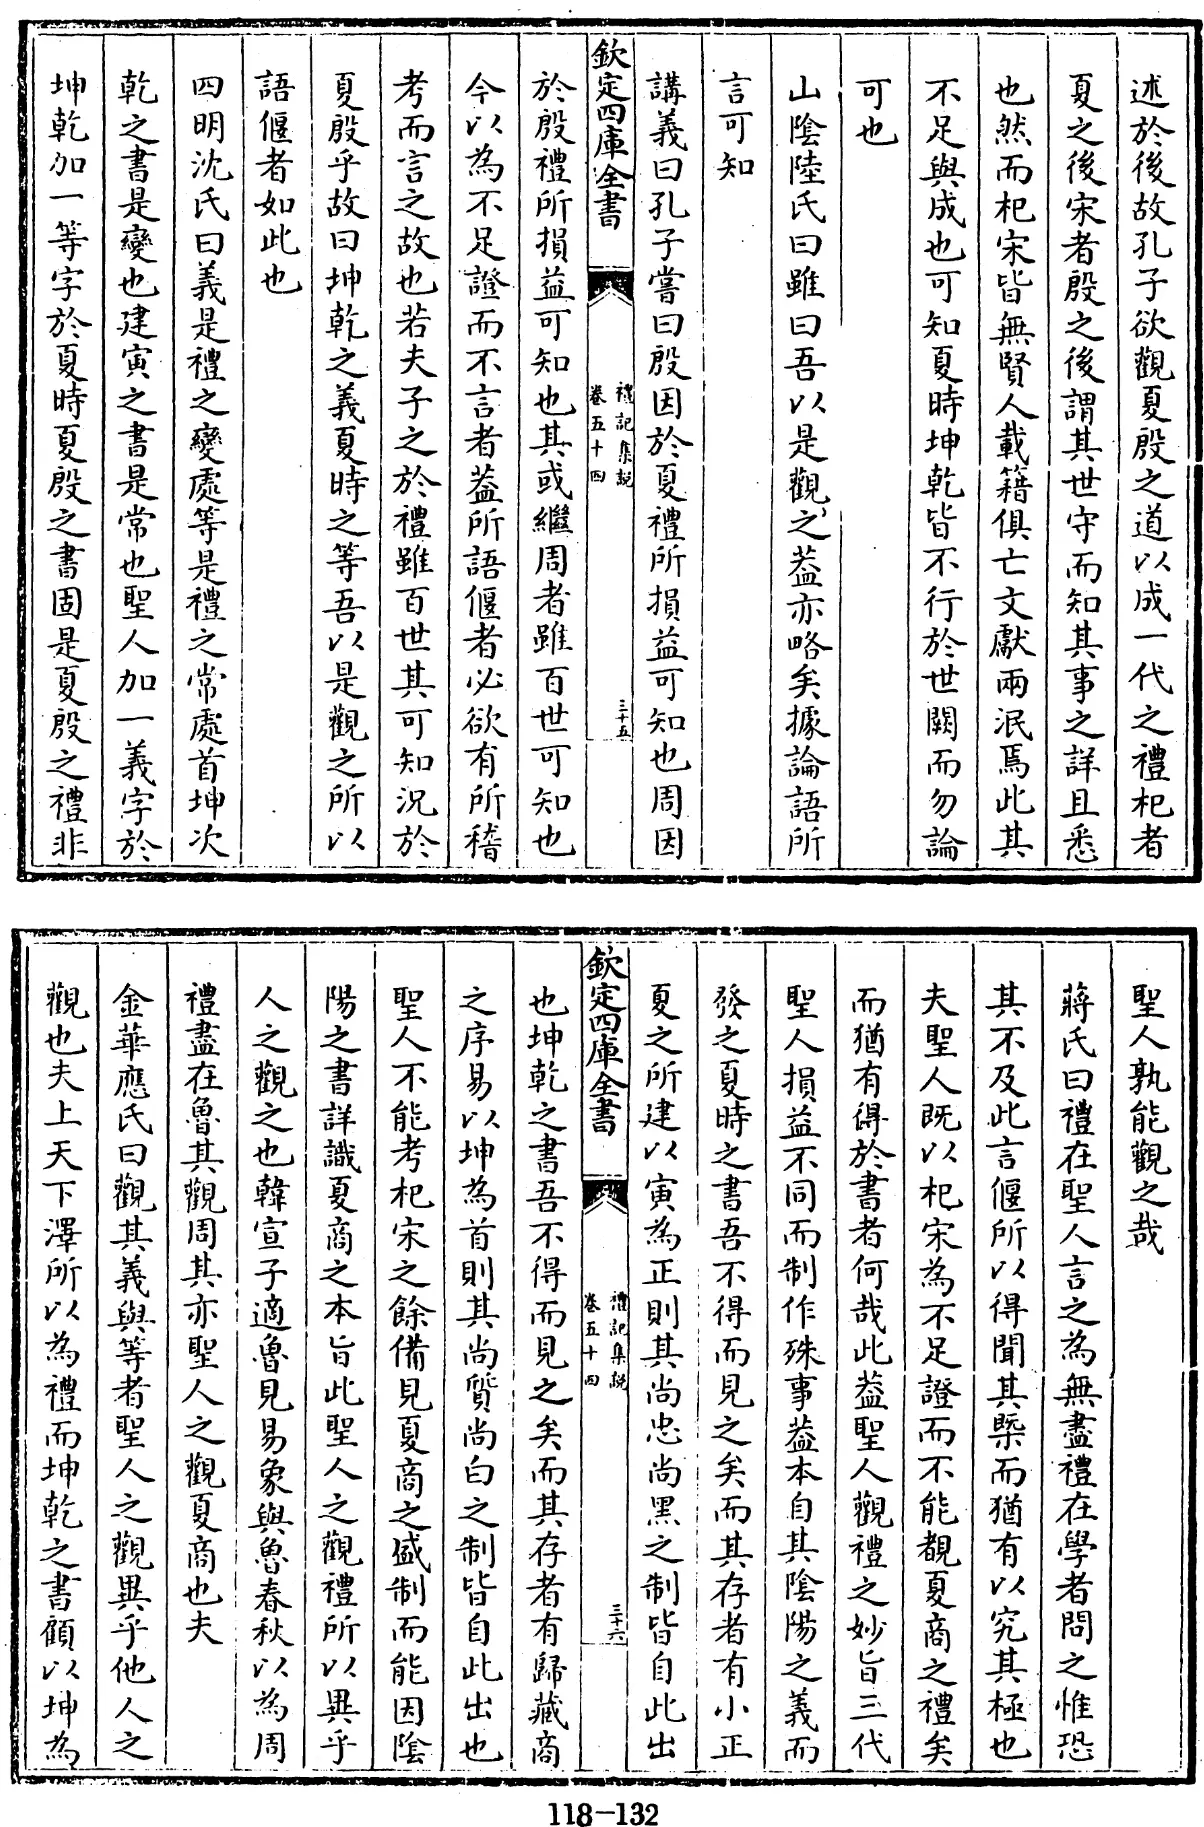 述於後故孔子欲觀夏殷之道以成一代之禮杞者
夏之後宋者殷之後謂其世守而知其事之詳且悉
也然而杞宋皆無賢人載籍俱亡文獻兩泯焉此其
不足與成也可知夏時坤乾皆不行於世闕而勿論
可也
山陰陸氏曰雖曰吾以是觀之葢亦略矣據論語所
言可知
講義曰孔子嘗曰殷因於夏禮所損益可知也周因
欽定四庫全書
禮記集說
卷五十四
三十五
於殷禮所損益可知也其或繼周者雖百世可知也
今以為不足證而不言者葢所語偃者必欲有所稽
考而言之故也若夫子之於禮雖百世其可知況於
夏殷乎故曰坤乾之義夏時之等吾以是觀之所以
語偃者如此也
四明沈氏曰義是禮之變處等是禮之常處首坤次
乾之書是變也建寅之書是常也聖人加一義字於
坤乾加一等字於夏時夏殷之書固是夏殷之禮非
聖人孰能觀之哉
蔣氏曰禮在聖人言之為無盡禮在學者問之惟恐
其不及此言偃所以得聞其槩而猶有以究其極也
夫聖人既以杞宋為不足證而不能覩夏商之禮矣
而猶有得於書者何哉此葢聖人觀禮之妙旨三代
聖人損益不同而制作殊事葢本自其陰陽之義而
發之夏時之書吾不得而見之矣而其存者有小正
夏之所建以寅為正則其尚忠尚黑之制皆自此出
欽定四庫全書
禮記集說
卷五十四
三十六
也坤乾之書吾不得而見之矣而其存者有歸藏商
之序易以坤為首則其尚質尚白之制皆自此出也
聖人不能考杞宋之餘備見夏商之盛制而能因陰
陽之書詳識夏商之本旨此聖人之觀禮所以異乎
人之觀之也韓宣子適魯見易象與魯春秋以為周
禮盡在魯其觀周其亦聖人之觀夏商也夫
金華應氏曰觀其義與等者聖人之觀異乎他人之
觀也夫上天下澤所以為禮而坤乾之書顧以坤為
118-132